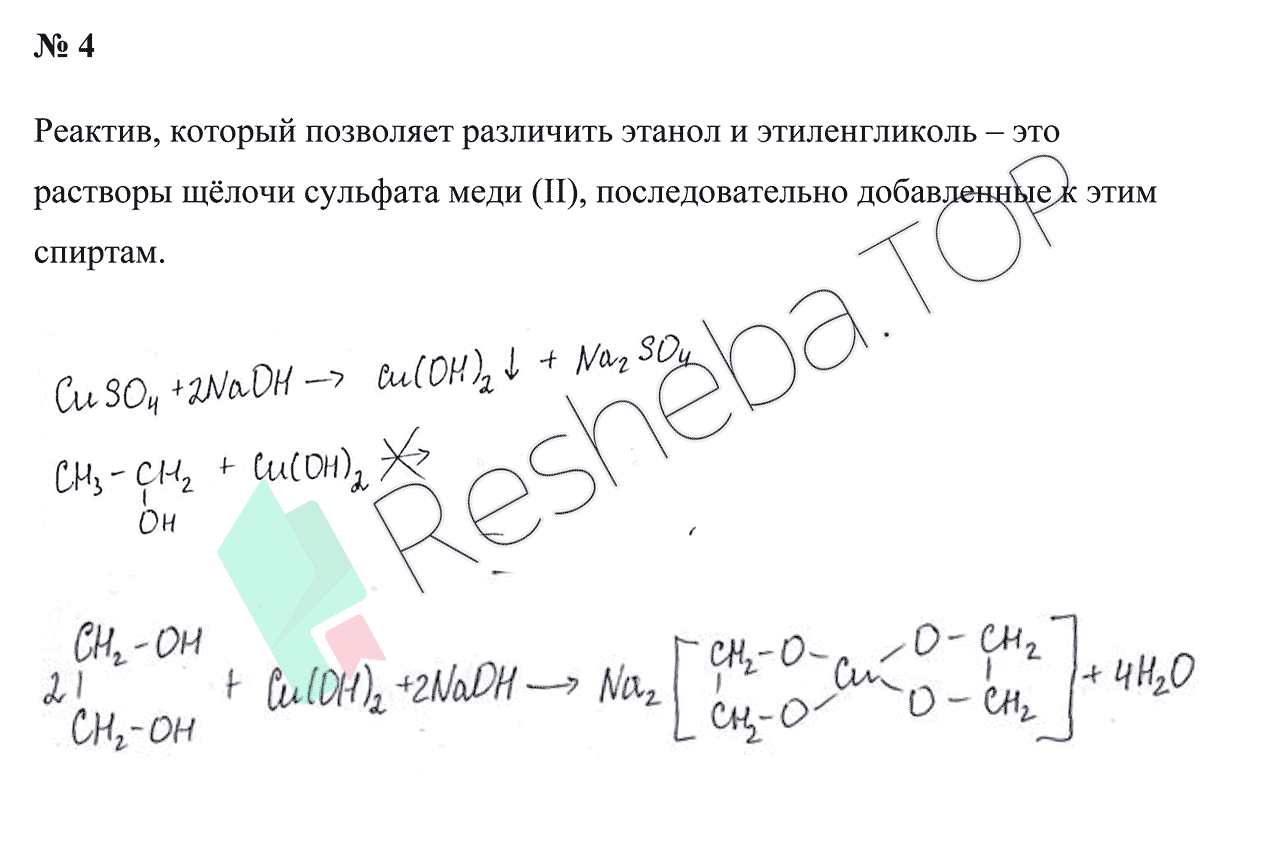 № 4
Реактив, который позволяет различить этанол и этиленгликоль – это
растворы щёлочи сульфата меди (II), последовательно добавленные к этим
спиртам.
CuSO₄ + 2NaOH → Cu(OH)₂ ↓ + Na₂SO₄
CH₃ – CH₂ + Cu(OH)₂ ↛
OH
CH₂ – OH
2 + Cu(OH)₂ + 2NaOH → Na₂ [ CH₂ – O – Cu – O – CH₂ ] + 4H₂O
CH₂ – OH CH₂ – O O – CH₂
Resheba.TOP